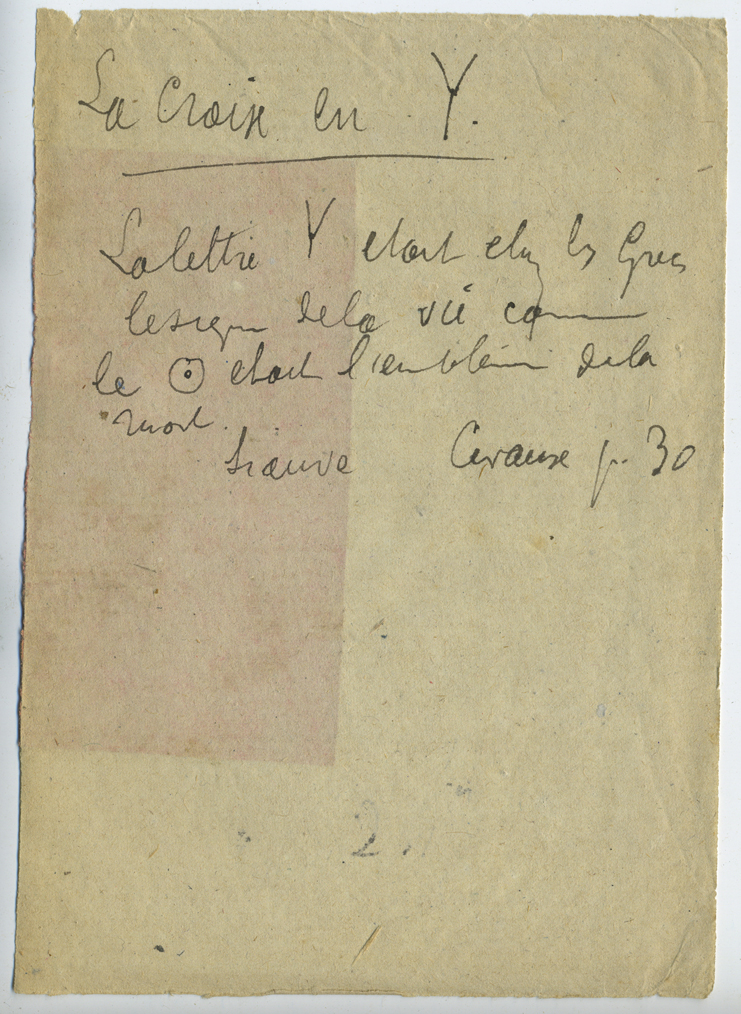 La Croix en Y.
La lettre Y etait chez les Grecs
le signe de la vie comme
le ☉ etait l'embleme de la
mort.
trouve p. 30
2.